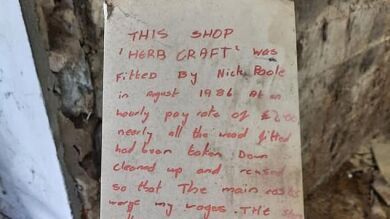 THIS SHOP
'HERB CRAFT' was
Fitted By Nick Poole
in August 1986 At an
hourly pay rate of £2.00
nearly all the wood fitted
had been taken Down
cleaned up and reused
so that The main costs
were my wages. THE